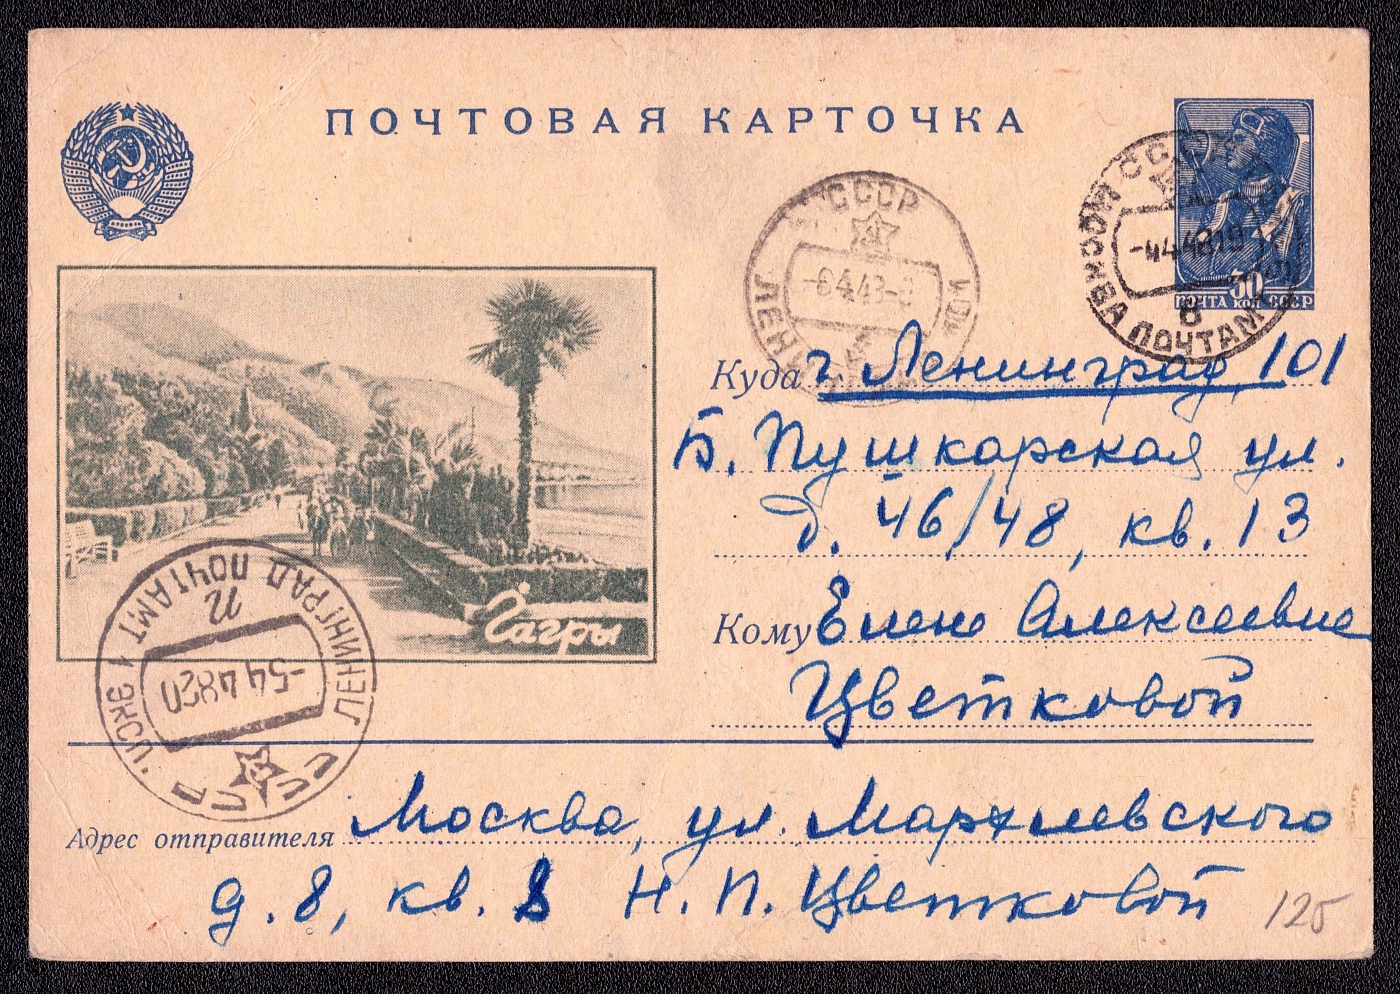 ПОЧТОВАЯ КАРТОЧКА
СССР
МОСКВА ПОЧТАМТ
-4.4.48.19
6
50
ПОЧТА КОП СССР
СССР
-6.4.48-8
Куда г. Ленинград, 101
Б. Пушкарская ул.
д. 46/48, кв. 13
Кому Елене Алексеевне
Цветковой
Гагры
СССР
ЛЕНИНГРАД ПОЧТАМТ 1 ЭКСП.
-5.4.4820
Адрес отправителя Москва, ул. Мархлевского
д. 8, кв. 8 Н. П. Цветковой
125